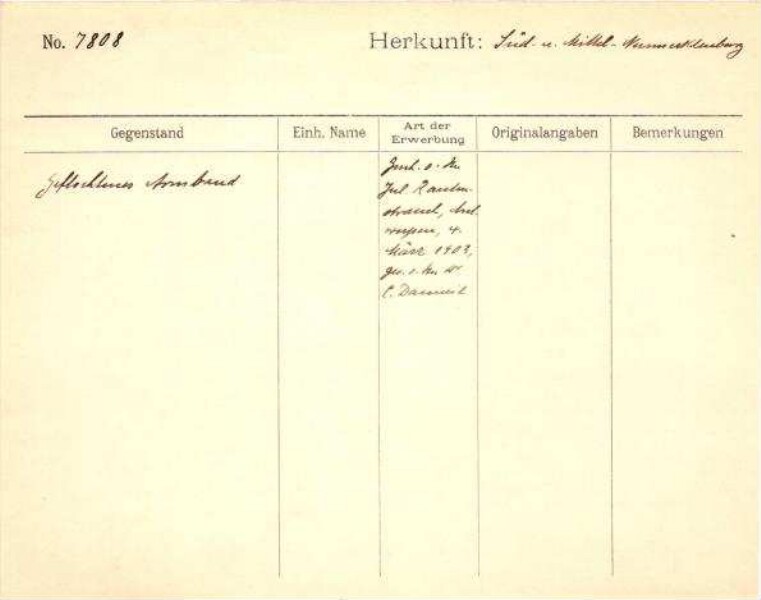 No. 7808
Herkunft: Süd- u. Mittel-Neumecklenburg
Gegenstand
Einh. Name
Art der Erwerbung
Originalangaben
Bemerkungen
Geflochtenes Armband
Gesch. v. Hn.
Jul. Rauten-
strauch, Ant
werpen, 4.
März 1903,
ges. v. Hn Dr
C. Danneil